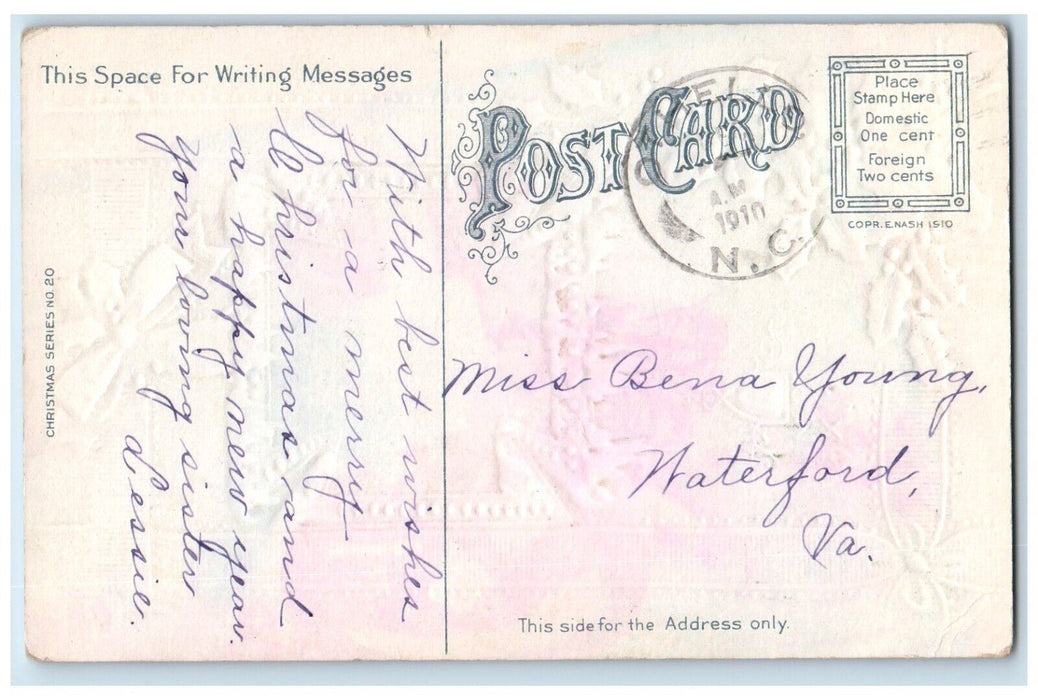 This Space For Writing Messages
With best wishes
for a merry
Christmas and
a happy new year.
Your loving sister
Lessie.
CHRISTMAS SERIES NO. 20
POST CARD
A.M
1910
N.C.
Place
Stamp Here
Domestic
One cent
Foreign
Two cents
COPR. E. NASH 1910
Miss Bena Young,
Waterford,
Va.
This side for the Address only.